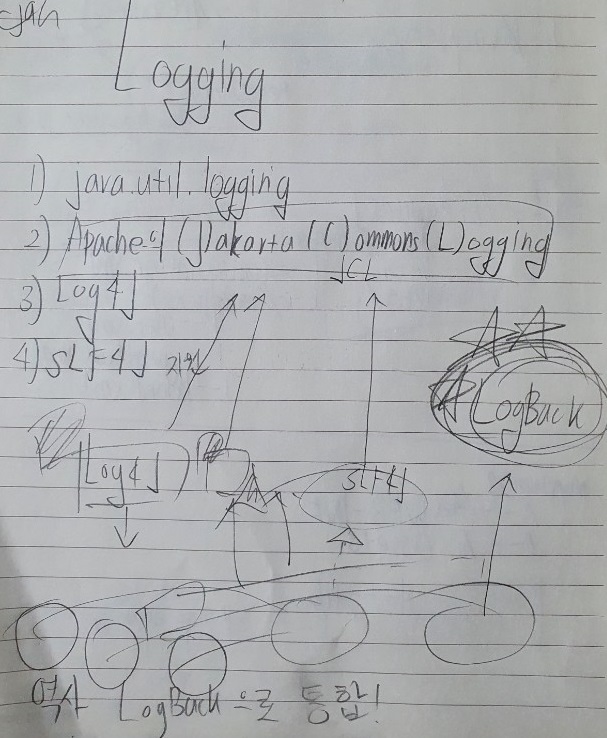 Logging
1) java.util.logging
2) Apache의 (J)akarta (C)ommons (L)ogging
JCL
3) Log4J
4) SLF4J 지원
LogBack
Log4J
SLF4J
역사 LogBack으로 통합!